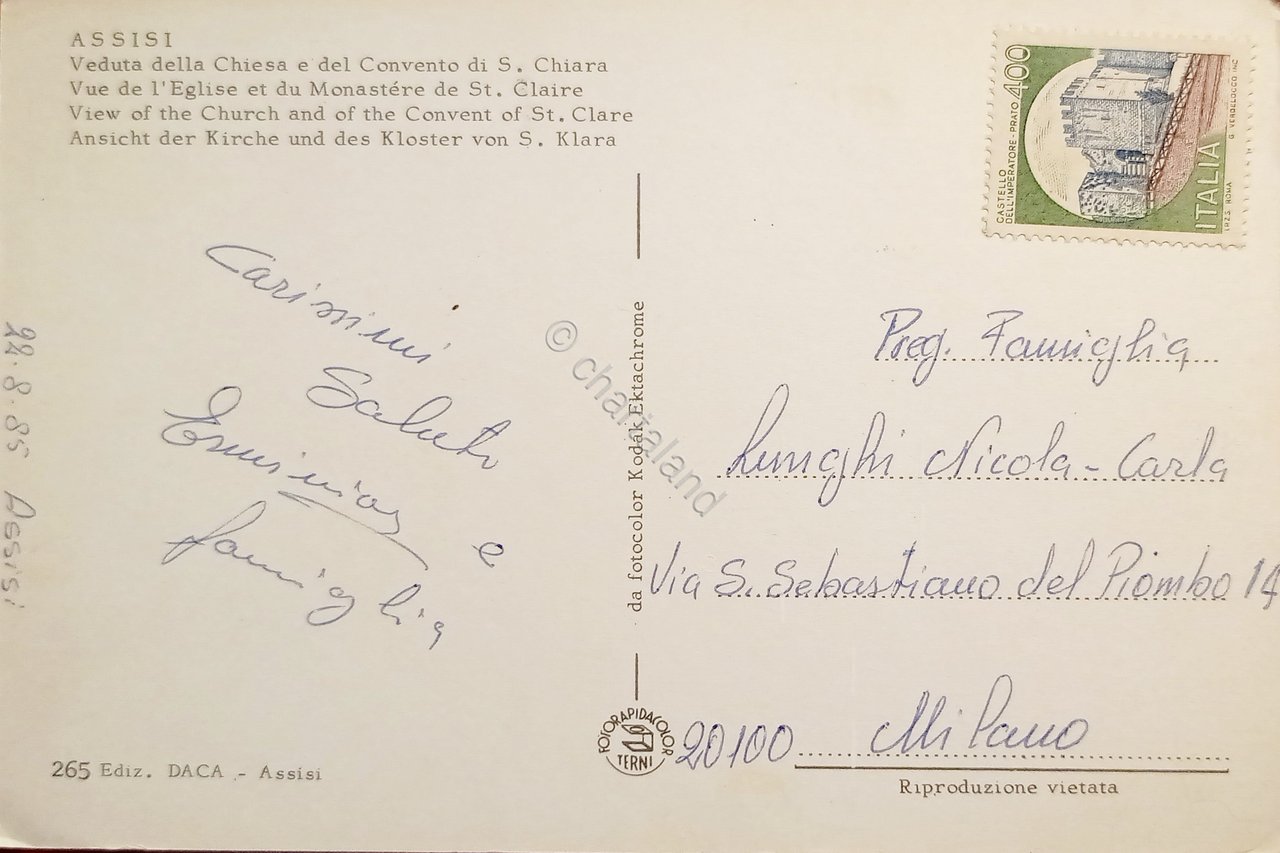 ASSISI
Veduta della Chiesa e del Convento di S. Chiara
Vue de l'Eglise et du Monastére de St. Claire
View of the Church and of the Convent of St. Clare
Ansicht der Kirche und des Kloster von S. Klara
CASTELLO
DELL'IMPERATORE - PRATO 400
ITALIA
I.P.Z.S. ROMA
G. VERDELOCCO INC.
Carissimi
Saluti
e
famiglia
22.8.85 Assisi
© chartaland
da fotocolor Kodak Ektachrome
Preg. Famiglia
Lunghi Nicola - Carla
Via S. Sebastiano del Piombo 14
20100 Milano
FOTORAPIDACOLOR
TERNI
265 Ediz. DACA - Assisi
Riproduzione vietata